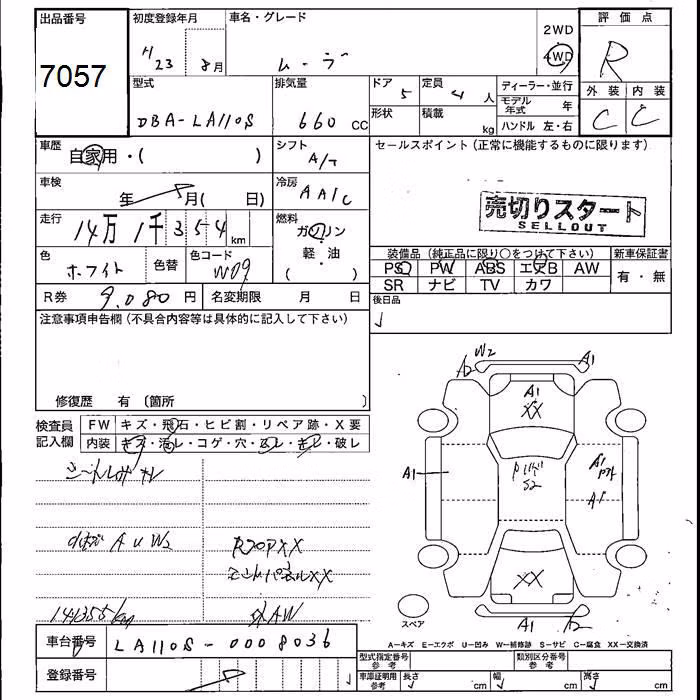 出品番号 初度登録年月 車名・グレード 評価点
7057 H23 8月 ムーヴ 2WD 4WD R
型式 排気量 ドア 5 定員 4人 ディーラー・並行 外装 内装
DBA-LA110S 660cc 形状 積載 kg モデル年式 年 C C
ハンドル 左・右
車歴 自家用・( ) シフト A/T セールスポイント(正常に機能するものに限ります)
車検 年 月( 日) 冷房 AA/C
売切りスタート
SELLOUT
走行 14万1千354km 燃料 ガソリン 軽・油 ( )
色 ホワイト 色替 色コード W09
装備品(純正品に限り○をつけて下さい) 新車保証書
PS PW ABS エアB AW 有・無
SR ナビ TV カワ
R券 9,080円 名変期限 月 日 後日品
注意事項申告欄(不具合内容等は具体的に記入して下さい)
修復歴 有 〔箇所 〕
検査員記入欄 FW キズ・飛石・ヒビ割・リペア跡・X要
内装 キズ・汚レ・コゲ・穴・スレ・キレ・破レ
W2
A2 A1
A1
XX
A1 S2 A1
A1
XX
A1
スペア
A U W2
XX
XX
141355km AW
A=キズ E=エクボ U=凹み W=補修跡 S=サビ C=腐食 XX=交換済
車台番号 LA110S-0008036
型式指定番号 参考 類別区分番号 参考
登録番号
車庫証明用 参考 長さ cm 幅 cm 高さ cm